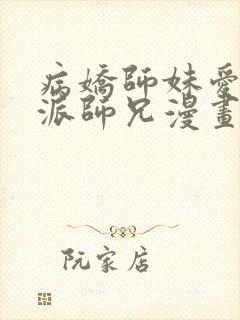 病嬌師妹愛
派師兄漫畫
阮家店